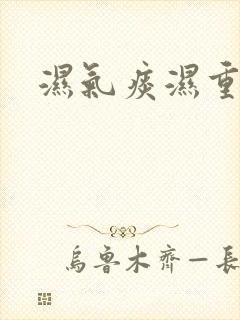 濕氣痰濕重
烏魯木齊—長